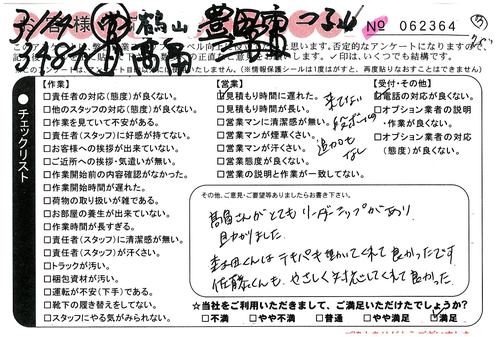 お客様
鶴山
No 062364
【作業】
□責任者の対応(態度)が良くない。
□他のスタッフの対応(態度)が良くない。
□作業を見ていて不安がある。
□責任者(スタッフ)に好感が持てない。
□お客様への挨拶が出来ていない。
□ご近所への挨拶・気遣いが無い。
□作業開始前の内容確認がなかった。
□作業開始時間が遅れた。
□荷物の取り扱いが雑である。
□お部屋の養生が出来ていない。
□作業時間が長すぎる。
□責任者(スタッフ)に清潔感が無い。
□責任者(スタッフ)が汗くさい。
□トラックが汚い。
□梱包資材が汚い。
□運転が不安(下手)である。
□靴下の履き替えをしてない。
□スタッフにやる気がみられない。
チェックリスト
【営業】
見積もり時間に遅れた。
□見積もり時間が長い。
□営業マンに清潔感が無い。
□営業マンが煙草くさい。
□営業マンが汗くさい。
□営業態度が良くない。
□営業の説明と作業が一致してない。
追加も
なし
【受付・その他】
電話の対応が良くない。
□オプション業者の説明
・作業が良くない。
□オプション業者の対応
(態度)が良くない。
その他、ご意見・ご要望等ありましたらお書き下さい。
高畠さんがとてもリーダーシップがあり
助かりました。
森田くんはテキパキ動いてくれて良かったです
佐藤くんも、やさしく対応してくれて良かった。
☆当社をご利用いただきまして、ご満足いただけたでしょうか?
□不満 □やや不満 □普通 □やや満足 満足